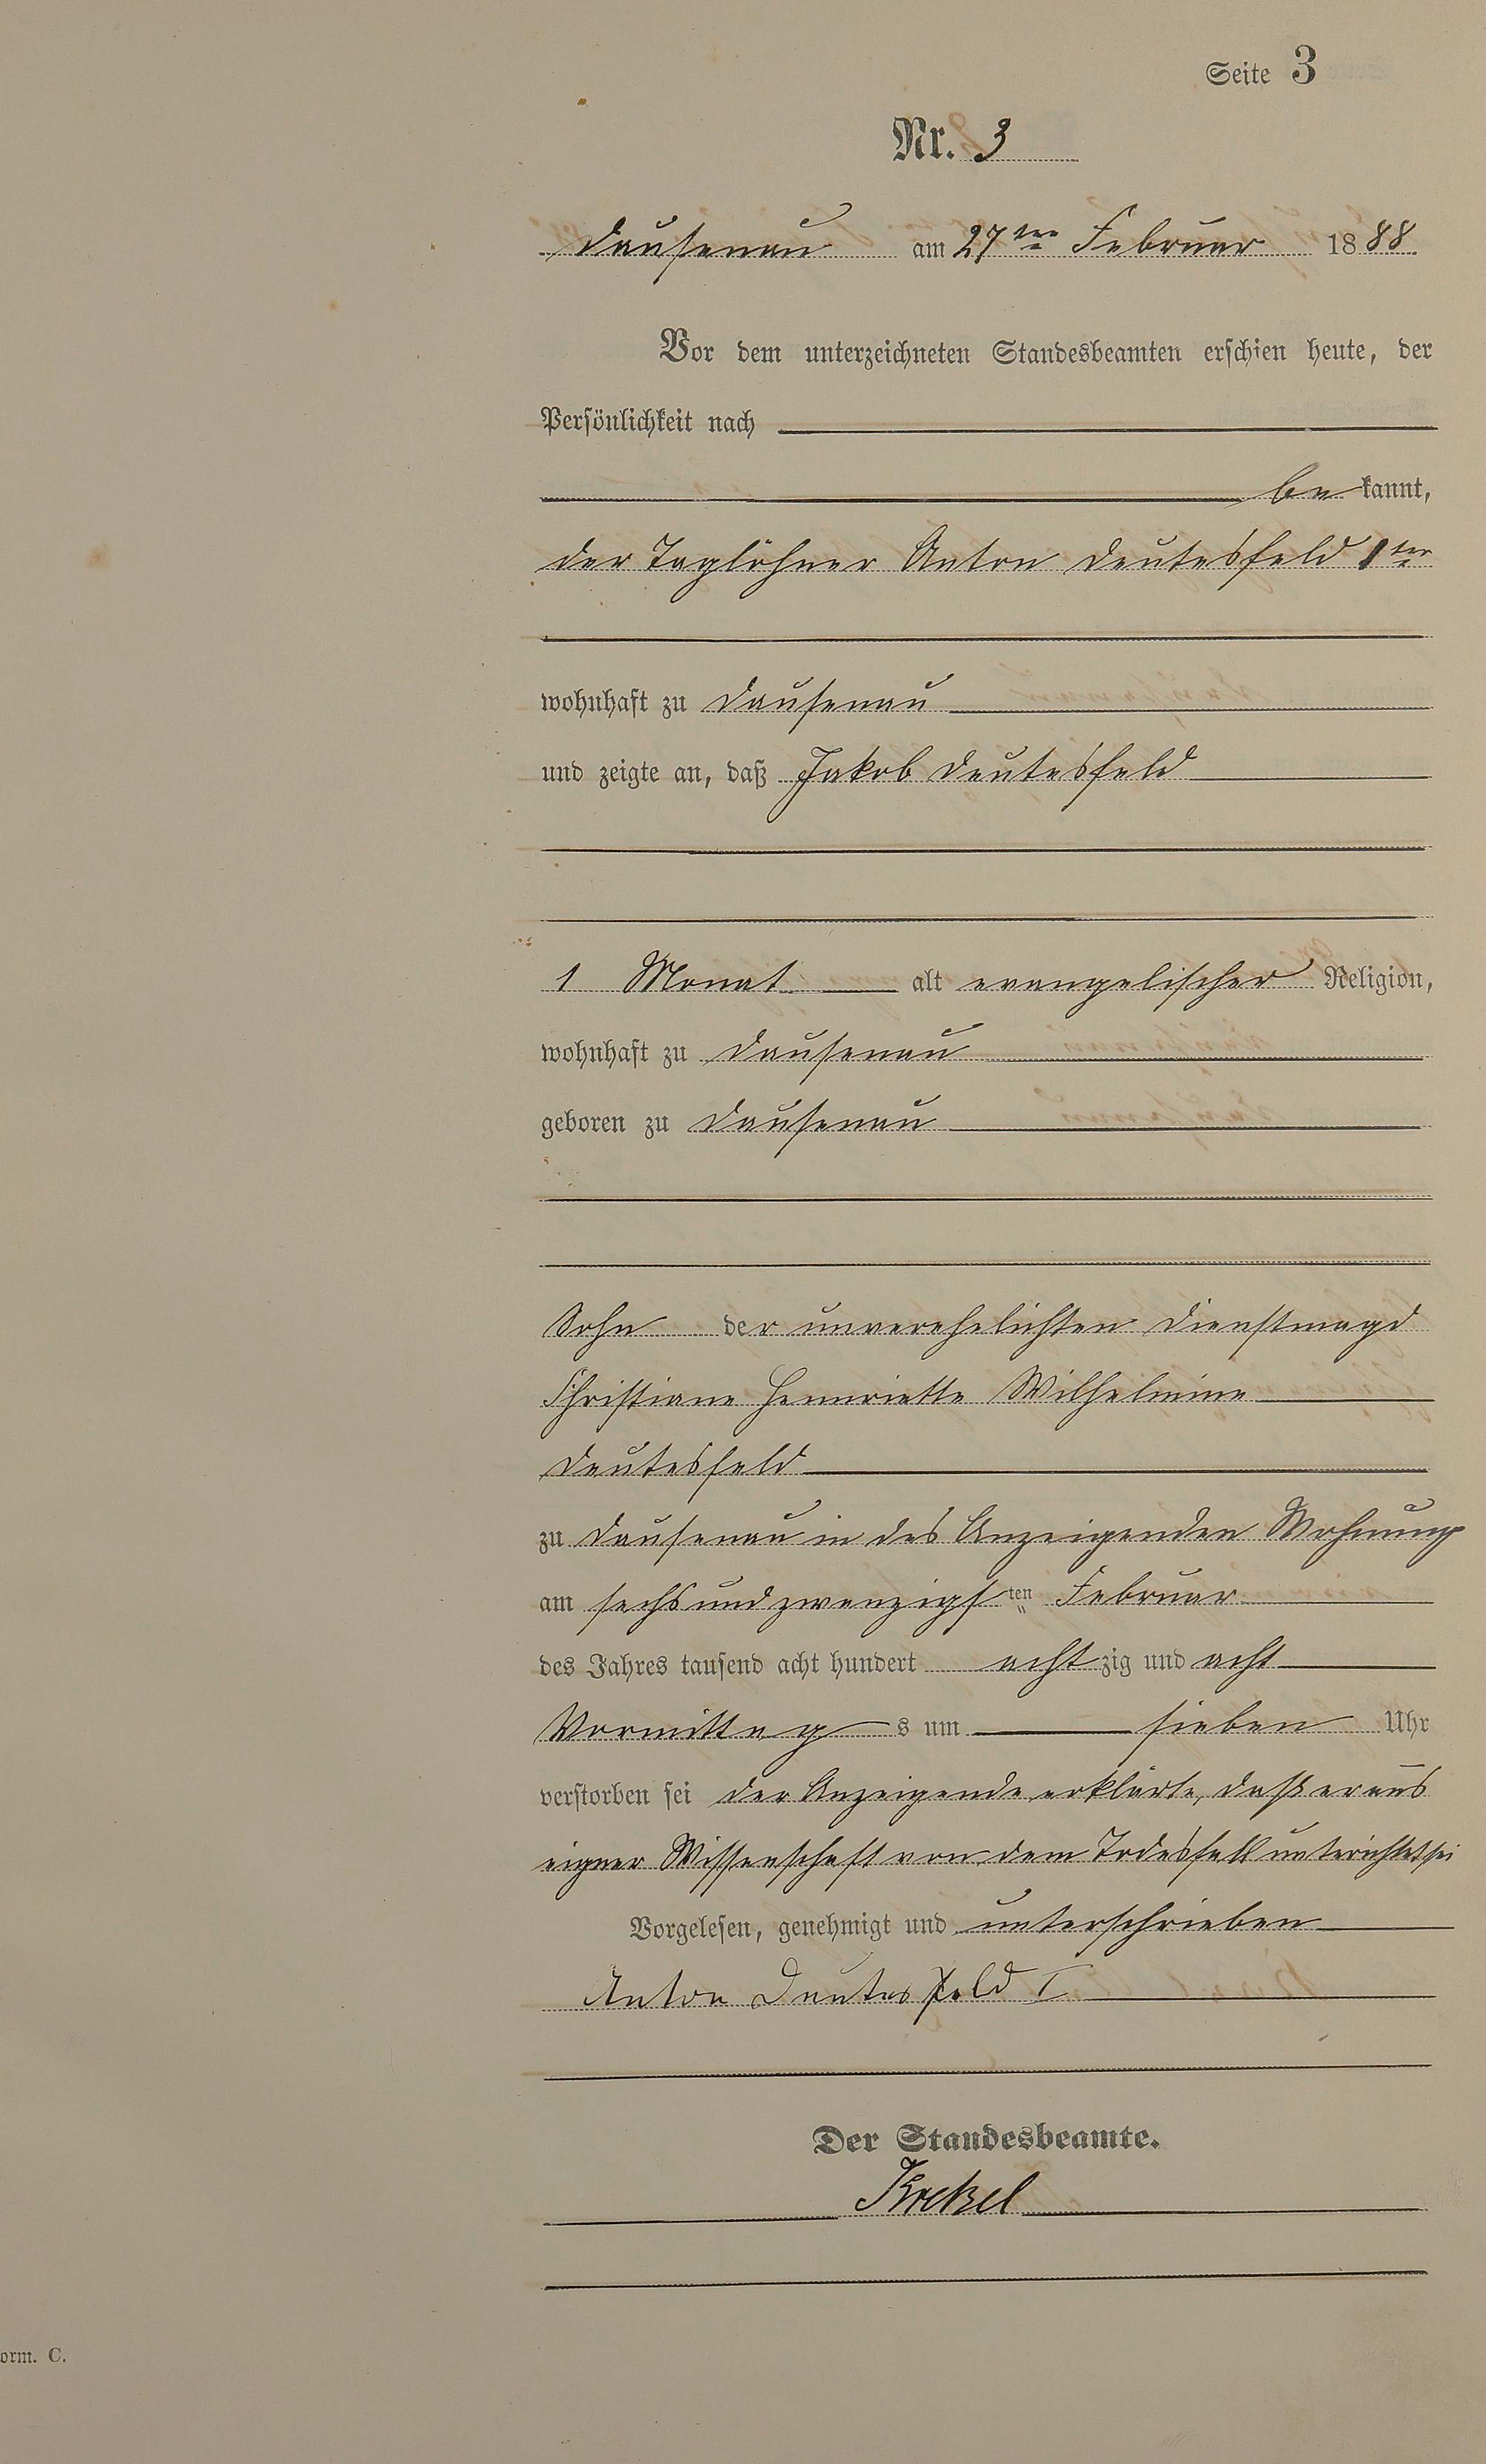 Seite 3
Nr. 3
Dausenau am 27ten Februar 1888
Vor dem unterzeichneten Standesbeamten erschien heute, der
Persönlichkeit nach
bekannt,
der Taglöhner Anton Deutesfeld 1ter
wohnhaft zu Dausenau
und zeigte an, daß Jakob Deutesfeld
1 Monat alt evangelischer Religion,
wohnhaft zu Dausenau
geboren zu Dausenau
Sohn der unverehelichten Dienstmagd
Christiane Hennriette Wilhelmine
Deutesfeld
zu Dausenau in des Anzeigenden Wohnung
am sechsundzwanzigsten Februar
des Jahres tausend acht hundert achtzig und acht
Vormittags um sieben Uhr
verstorben sei der Anzeigende erklärte, daß er aus
eigner Wissenschaft von dem Todesfall unterichtet sei
Vorgelesen, genehmigt und unterschrieben
Anton Deutesfeld I
Der Standesbeamte.
orm. C.